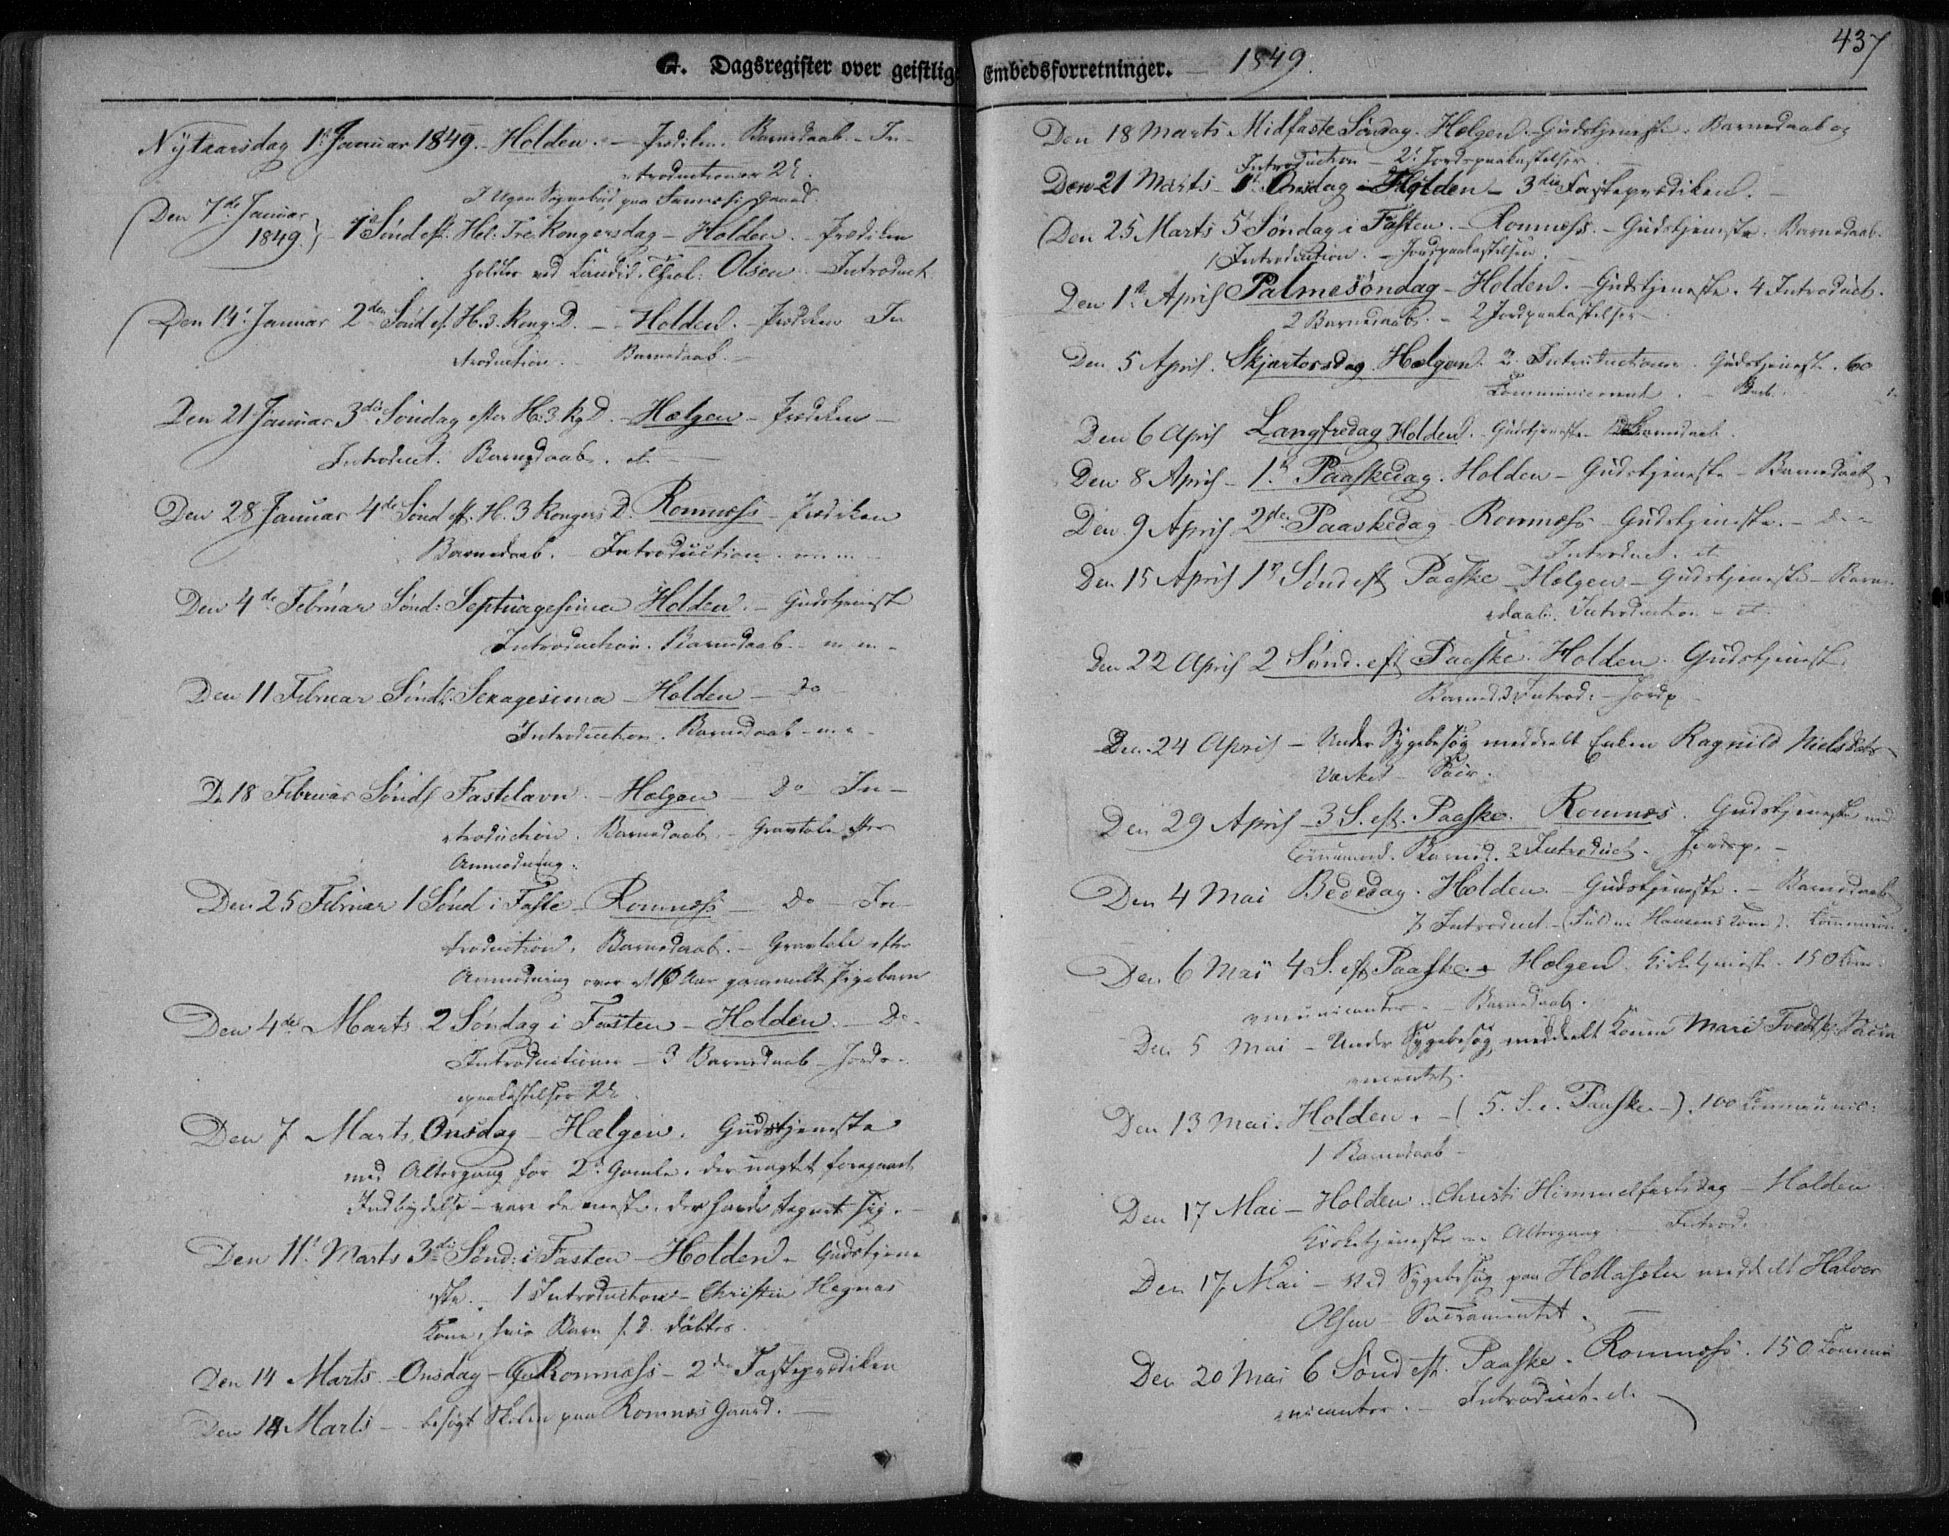 G. Dagsregister over geistlige Embedsforretninger. – 1849.
437
Nytaarsdag 1 Januar 1849. – Holden. – Prædiken. Barnedaab – In-
troductioner 2
I Ugen Sognebud paa Gaard.
Den 7de Januar
1849. 1 Sønd eft. Hel. Tre Kongersdag – Holden. – Prædiken
holdtes ved Candid. Theol: Olsen – Introduct.
Den 14. Januar 2den Sønd ef. H. 3. Kong. D. – Holden. – Prædiken In
troduction. Barnedaab. –
Den 21 Januar 3die Søndag efter H. 3. Kg D. – Hælgen – Prædiken –
Introduct. Barnedaab.
Den 28 Januar 4de Sønd eft. H. 3 Kongers D. Romnæss – Prædiken
Barnedaab. – Introduction.
Den 4de Februar Sønd: Septuagesima Holden. – Gudstjeneste
Introduction. Barnedaab. – m m –
Den 11 Februar Sønd: Sexagesima – Holden – Do
Introduction. Barnedaab – m m –
D. 18 Februar Sønd Fastelavn. – Hælgen – Do – In-
troduction. Barnedaab. – Gravtale efter
Anmodning.
Den 25 Februar 1 Sønd i Faste – Romnæss – Do – In-
troduction. Barnedaab. – Gravtale efter
Anmodning over et 16 Aar gammelt Pigebarn
Den 4de Marts 2 Søndag i Fasten – Holden. – Do.
Introductioner – 3 Barnedaab – Jords-
paakastelser 2
Den 7 Marts, Onsdag – Hælgen. Gudstjeneste
med Altergang for 2 Gamle. der uagtet foregaaet
Indbydelse – vare de eneste. der havde tegnet sig. –
Den 11 Marts 3die Sønd: i Fasten – Holden. – Gudstjene
ste. – 1 Introduction – Christen Hegnas
Kone, hvis Barn f. D. døbtes.
Den 14 Marts – Onsdag – Romnæss – 2den Fasteprædiken
Den 14 Marts – besøgt Skolen paa Romnæs Gaard. –
Den 18 Marts Midfaste Søndag. Hælgen. Gudstjeneste. Barnedaab og
Introduction – 2 Jordspaakastelser.
Den 21 Marts – Onsdag – Holden – 3die Fasteprædiken.
(Den 25 Marts 5 Søndag i Fasten. – Romnæss. – Gudstjeneste. Barnedaab.
1 Introduction. – Jordpaakastelser.
Den 1ste April Palmesøndag – Holden. – Gudstjeneste. 4 Introduct.
2 Barnedaab. – 2 Jordpaakastelser –
Den 5 April. Skjærtorsdag Hælgen. 2 Introductioner. Gudstjeneste. 60
Communicant. – Barb.
Den 6 April Langfredag Holden. Gudstjeneste Barnedaab.
Den 8 April – 1ste Paaskedag. Holden – Gudstjeneste – Barnedaab.
Den 9 April 2den Paaskedag – Romnæss Gudstjeneste. – Do –
Introduct.
Den 15 April 1ste Sønd eft Paaske – Hælgen – Gudstjeneste – Barne
daab. Introduction –
Den 22 April 2 Sønd. eft Paaske. Holden. Gudstjeneste
Barned. 3 Introd. – Jordp –
Den 24 April – Under Sygebesøg meddelt Enken Ragnild Nielsdatr
Den 29 April – 3 S. eft. Paaske. Romnæs. Gudstjeneste med
Communion. Barned. 2 Introduct. – Jordsp. –
Den 4 Mai Bededag. Holden – Gudstjeneste. – Barnedaab
7 Introduct – Hansens Kone). Commun
Den 6 Mai 4 S. eft Paaske. Hælgen. Kirketjeneste. 150 Com-
municanter. – Barnedaab.
Den 5 Mai – Under Sygebesøg meddelt Konen Mari Sacra
mentet.
Den 13 Mai. Holden. – (5. S. e. Paaske –). 100 Communic:
1 Barnedaab –
Den 17 Mai – Holden. Christi Himmelfartsdag – Holden
Kirketjeneste – Altergang – Introd.
Den 17 Mai – Ved Sygebesøg paa meddelt Halvor
Olsen – Sacramentet.
Den 20 Mai 6 Sønd eft. Paaske. Romnæss. 150 Commu
nicanter. – Introduct.